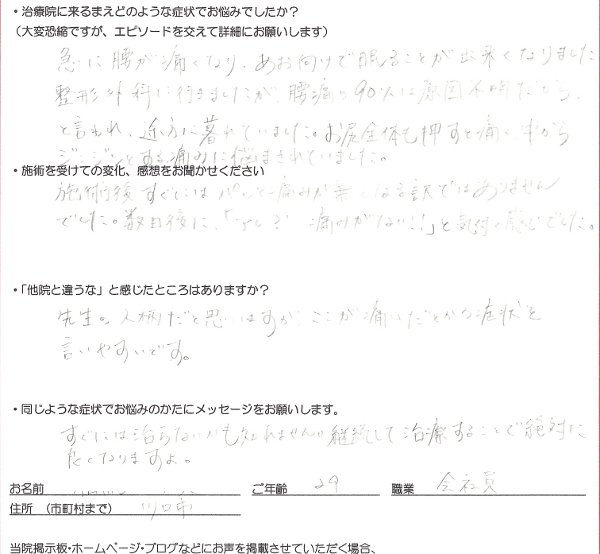 ・治療院に来るまえどのような症状でお悩みでしたか？
（大変恐縮ですが、エピソードを交えて詳細にお願いします）
急に腰が痛くなり、あお向けで眠ることが出来くなりました
整形外科に行きましたが、腰痛の90%は原因不明だから、
と言われ、途方に暮れていました。お尻全体も押すと痛く、中から
ジンジンとする痛みに悩まされていました。
・施術を受けての変化、感想をお聞かせください
施術後すぐにはパッと痛みが無くなる訳ではありません
でした。数日後に、「あれ？ 痛みがない！！」と気付く感じでした。
・「他院と違うな」と感じたところはありますか？
先生の人柄だと思いますが、ここが痛いだとかの症状を
言いやすいです。
・同じような症状でお悩みのかたにメッセージをお願いします。
すぐには治らないかも知れませんが継続して治療することで絶対に
良くなりますよ。
お名前 ご年齢 29 職業 会社員
住所 （市町村まで） 川口市
当院掲示板・ホームページ・ブログなどにお声を掲載させていただく場合、